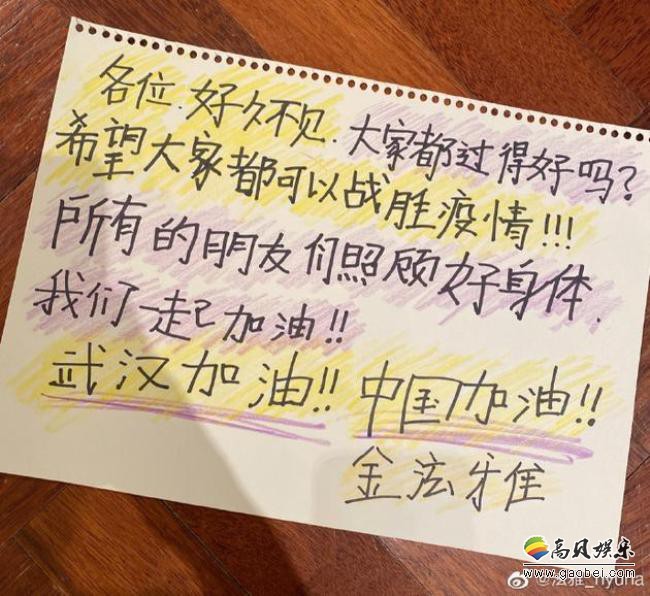 各位.好久不见.大家都过得好吗?
希望大家都可以战胜疫情!!!
所有的朋友们照顾好身体.
我们一起加油!!
武汉加油!! 中国加油!!
金泫雅
高贝娱乐
www.gaobei.com
@泫雅_hyuna